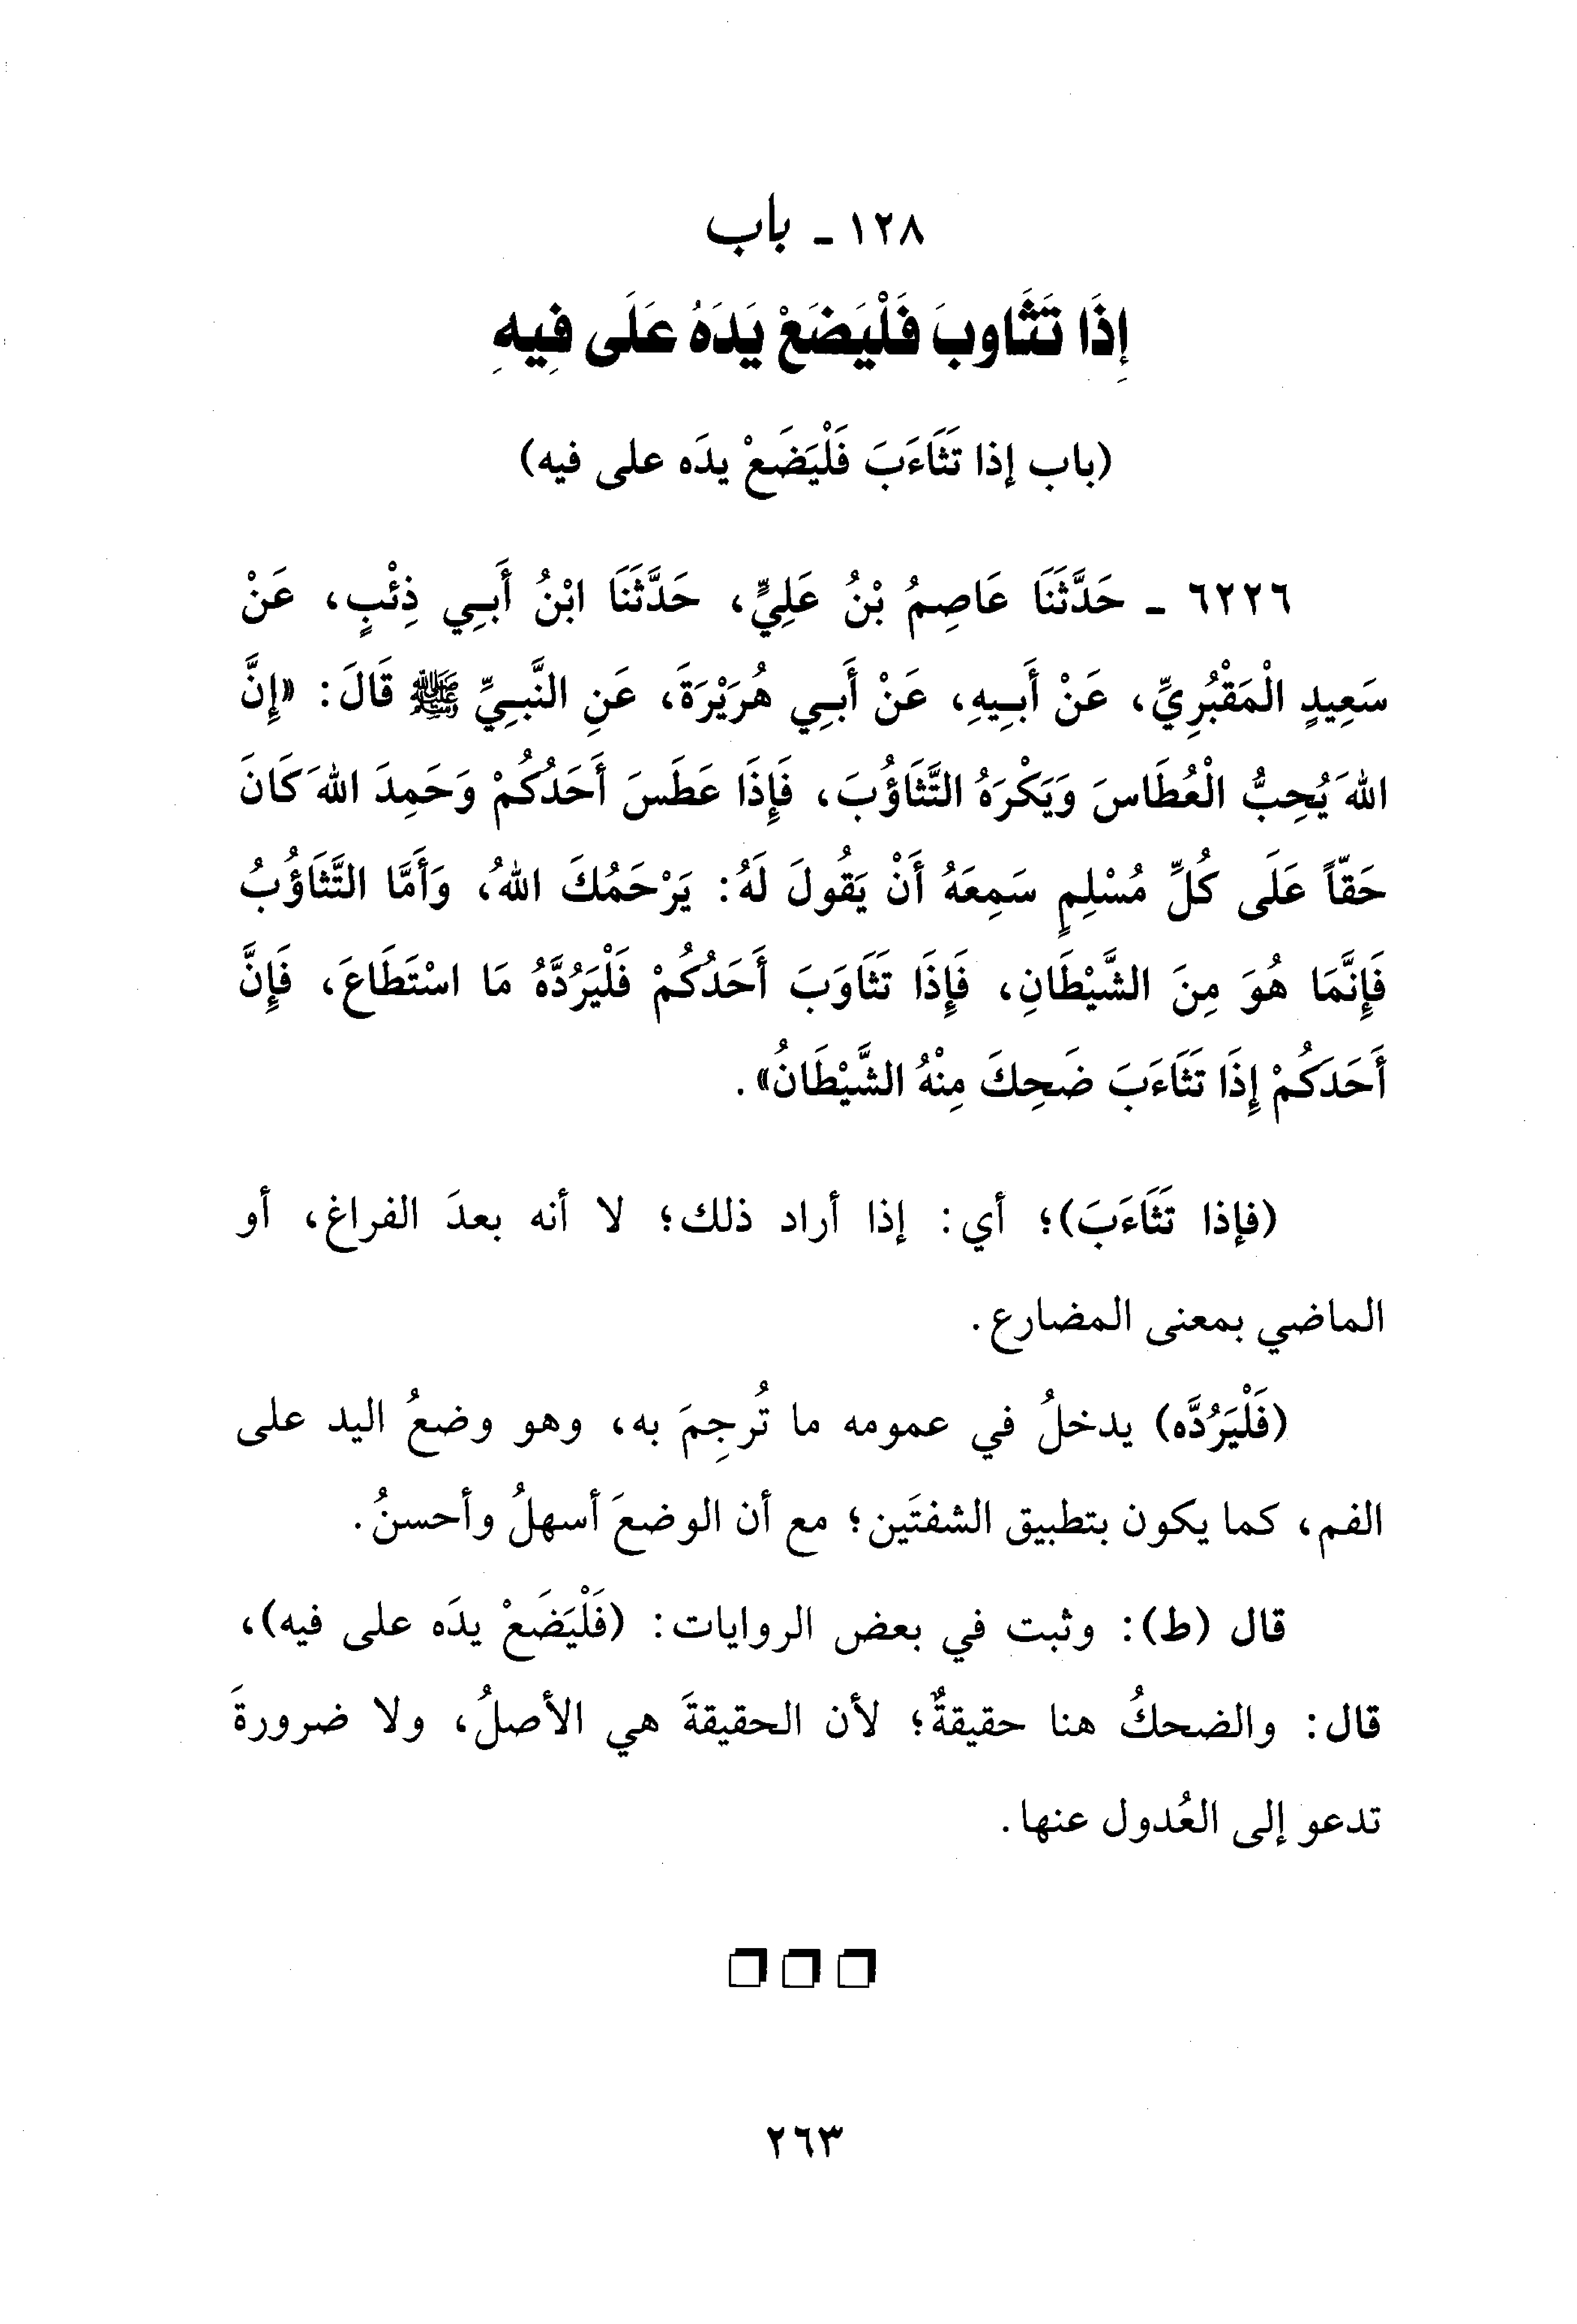 ١٢٨ - باب
إِذَا تَثَاوبَ فَلْيَضَعْ يَدَهُ عَلَى فِيهِ
(باب إذا تَثَاءَبَ فَلْيَضَعْ يدَه على فيه)
٦٢٢٦ - حَدَّثَنَا عَاصِمُ بْنُ عَلِيٍّ، حَدَّثَنَا ابْنُ أَبِي ذِئْبٍ، عَنْ
سَعِيدٍ الْمَقْبُرِيِّ، عَنْ أَبِيهِ، عَنْ أَبِي هُرَيْرَةَ، عَنِ النَّبِيِّ ﷺ قَالَ: «إِنَّ
اللهَ يُحِبُّ الْعُطَاسَ وَيَكْرَهُ التَّثَاؤُبَ، فَإِذَا عَطَسَ أَحَدُكُمْ وَحَمِدَ اللهَ كَانَ
حَقّاً عَلَى كُلِّ مُسْلِمٍ سَمِعَهُ أَنْ يَقُولَ لَهُ: يَرْحَمُكَ اللهُ، وَأَمَّا التَّثَاؤُبُ
فَإِنَّمَا هُوَ مِنَ الشَّيْطَانِ، فَإِذَا تَثَاوَبَ أَحَدُكُمْ فَلْيَرُدَّهُ مَا اسْتَطَاعَ، فَإِنَّ
أَحَدَكُمْ إِذَا تَثَاءَبَ ضَحِكَ مِنْهُ الشَّيْطَانُ».
(فإذا تَثَاءَبَ)؛ أي: إذا أراد ذلك؛ لا أنه بعدَ الفراغ، أو
الماضي بمعنى المضارع.
(فَلْيَرُدَّه) يدخلُ في عمومه ما تُرجِمَ به، وهو وضعُ اليد على
الفم، كما يكون بتطبيق الشفتَين؛ مع أن الوضعَ أسهلُ وأحسنُ.
قال (ط): وثبت في بعض الروايات: (فَلْيَضَعْ يدَه على فيه)،
قال: والضحكُ هنا حقيقةٌ؛ لأن الحقيقةَ هي الأصلُ، ولا ضرورةَ
تدعو إلى العُدول عنها.
٢٦٣